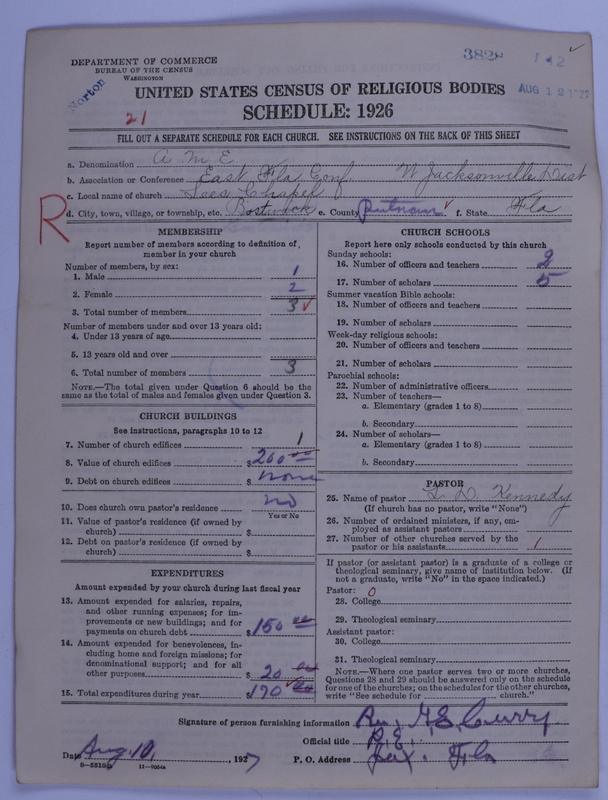 3828 142
DEPARTMENT OF COMMERCE
BUREAU OF THE CENSUS
WASHINGTON
Norton
AUG 12 1927
UNITED STATES CENSUS OF RELIGIOUS BODIES
21
SCHEDULE: 1926
FILL OUT A SEPARATE SCHEDULE FOR EACH CHURCH. SEE INSTRUCTIONS ON THE BACK OF THIS SHEET
a. Denomination A M E
b. Association or Conference East Fla Conf. W Jacksonville Dist
c. Local name of church Lees Chapel
R
d. City, town, village, or township, etc. Bostwick e. County Putnam f. State Fla
MEMBERSHIP
Report number of members according to definition of member in your church
Number of members, by sex:
1. Male 1
2. Female 2
3. Total number of members 3
Number of members under and over 13 years old:
4. Under 13 years of age
5. 13 years old and over
6. Total number of members 3
NOTE.—The total given under Question 6 should be the same as the total of males and females given under Question 3.
CHURCH BUILDINGS
See instructions, paragraphs 10 to 12
7. Number of church edifices 1
8. Value of church edifices $ 200 00
9. Debt on church edifices $ none
10. Does church own pastor's residence no
Yes or No
11. Value of pastor's residence (if owned by church) $
12. Debt on pastor's residence (if owned by church) $
EXPENDITURES
Amount expended by your church during last fiscal year
13. Amount expended for salaries, repairs, and other running expenses; for improvements or new buildings; and for payments on church debt $ 150 00
14. Amount expended for benevolences, including home and foreign missions; for denominational support; and for all other purposes $ 20 00
15. Total expenditures during year $ 170 00
CHURCH SCHOOLS
Report here only schools conducted by this church
Sunday schools:
16. Number of officers and teachers 2
17. Number of scholars 5
Summer vacation Bible schools:
18. Number of officers and teachers
19. Number of scholars
Week-day religious schools:
20. Number of officers and teachers
21. Number of scholars
Parochial schools:
22. Number of administrative officers
23. Number of teachers—
a. Elementary (grades 1 to 8)
b. Secondary
24. Number of scholars—
a. Elementary (grades 1 to 8)
b. Secondary
PASTOR
25. Name of pastor L. D. Kennedy
(If church has no pastor, write "None")
26. Number of ordained ministers, if any, employed as assistant pastors
27. Number of other churches served by the pastor or his assistants 1
If pastor (or assistant pastor) is a graduate of a college or theological seminary, give name of institution below. (If not a graduate, write "No" in the space indicated.)
Pastor: 0
28. College
29. Theological seminary
Assistant pastor:
30. College
31. Theological seminary
NOTE.—Where one pastor serves two or more churches, Questions 28 and 29 should be answered only on the schedule for one of the churches; on the schedules for the other churches, write "See schedule for church."
Signature of person furnishing information Rev. H. E. Curry
Official title P. E.
Date Aug. 10, 1927 P. O. Address Jax. Fla
8-5518a 11-9054a